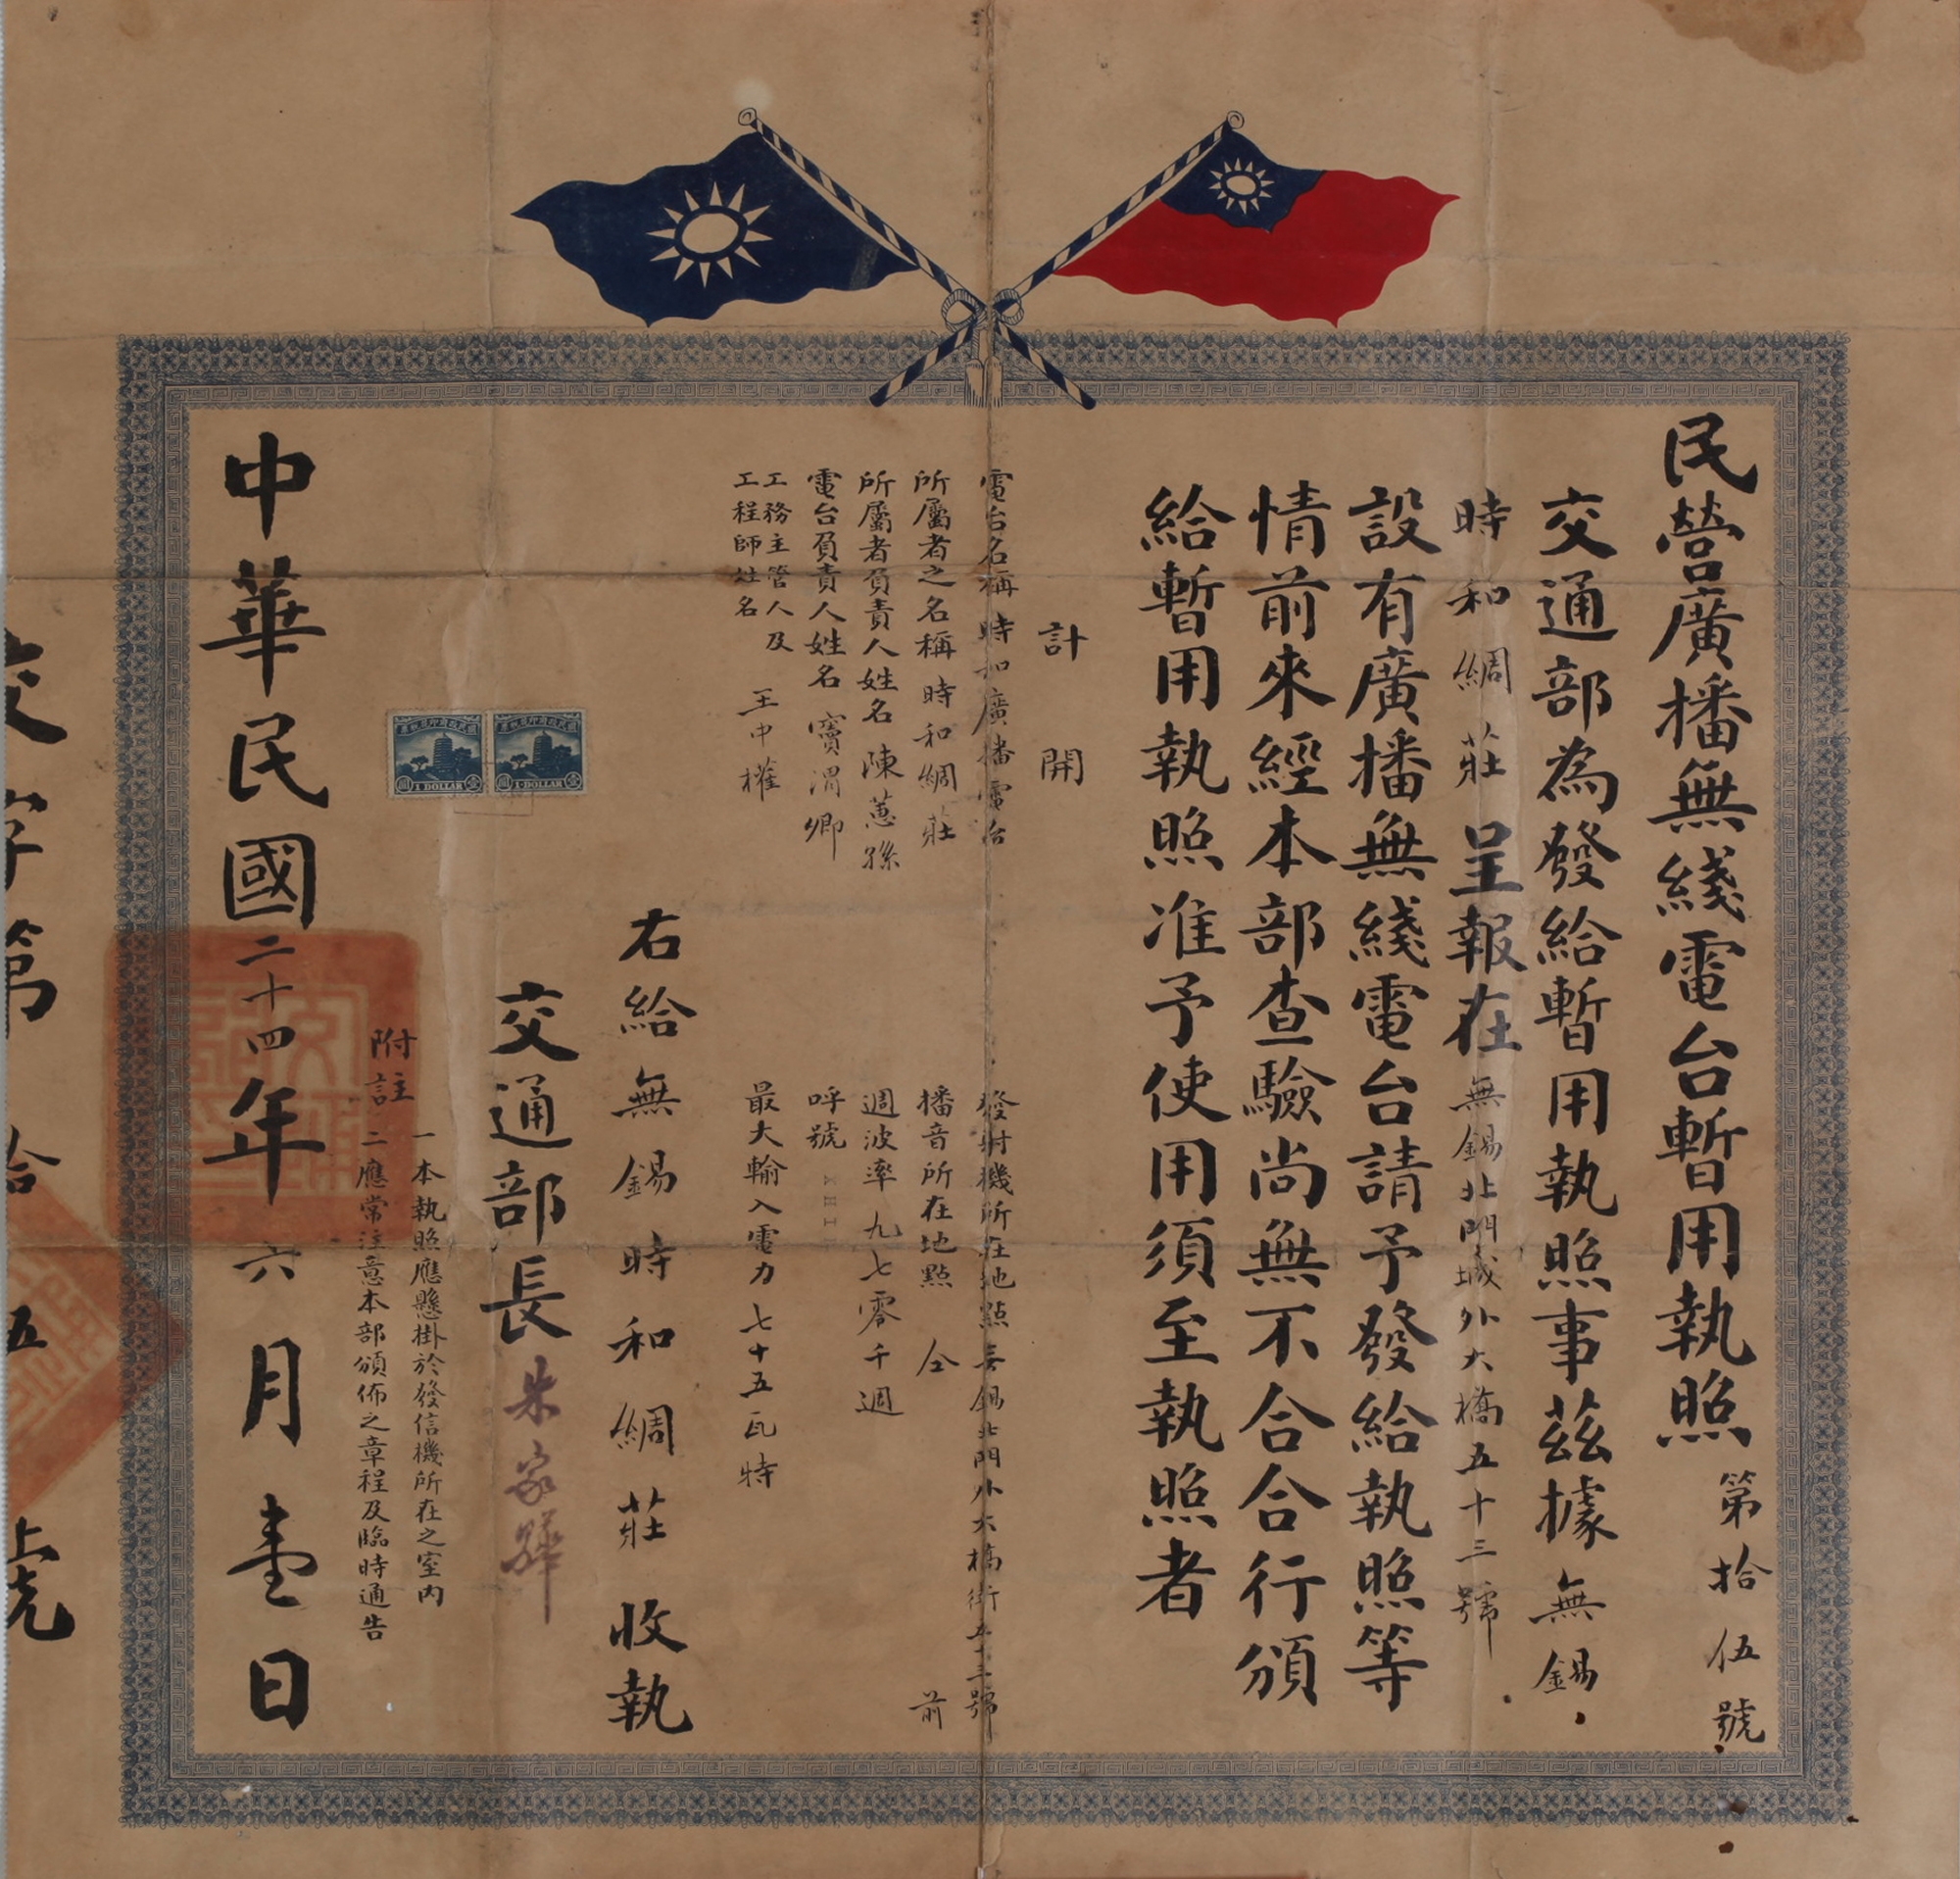 民營廣播無綫電台暫用執照 第拾伍號
交通部為發給暫用執照事茲據無錫
時和綢莊呈報在無錫北門城外大橋五十三號
設有廣播無綫電台請予發給執照等
情前來經本部查驗尚無不合合行頒
給暫用執照准予使用須至執照者
計開
電台名稱 時和廣播電台
發射機所在地點 無錫北門外大橋街五十三號
所屬者之名稱 時和綢莊
播音所在地點 仝前
所屬者負責人姓名 陳蕙孫
週波率 九七零千週
電台負責人姓名 竇渭卿
呼號
工務主管人及
工程師姓名 王中權
最大輸入電力 七十五瓦特
右給無錫時和綢莊收執
交通部長 朱家驊
附註
一本執照應懸掛於發信機所在之室內
二應常注意本部頒佈之章程及臨時通告
1 DOLLAR
1 DOLLAR
中華民國二十四年六月壹日
交字第拾五號